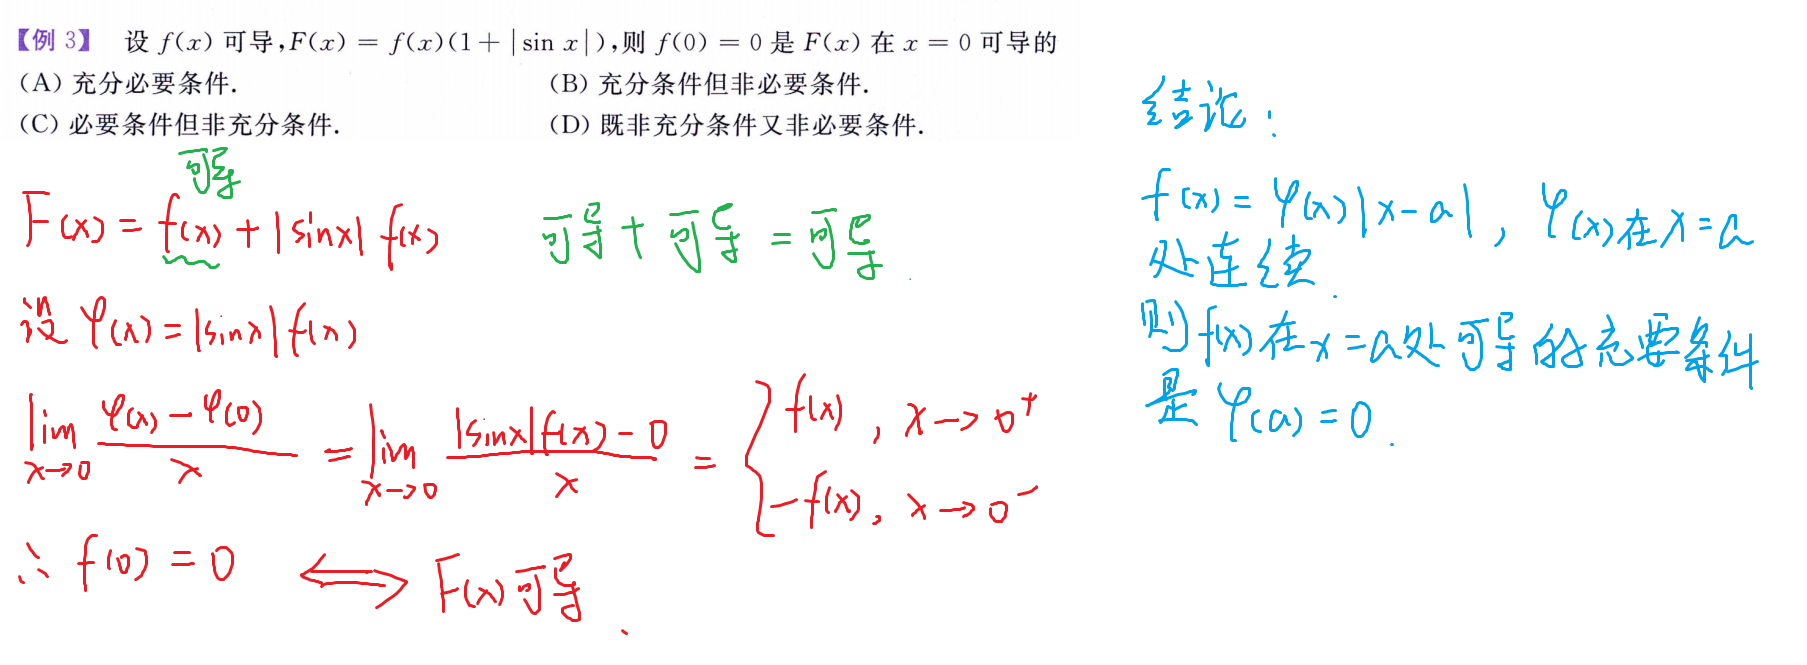 【例 3】 设 f(x) 可导,F(x) = f(x)(1+|sin x|),则 f(0) = 0 是 F(x) 在 x = 0 可导的
(A) 充分必要条件. (B) 充分条件但非必要条件.
(C) 必要条件但非充分条件. (D) 既非充分条件又非必要条件.
可导
F(x) = f(x) + |sinx| f(x) 可导 + 可导 = 可导.
设 φ(x) = |sinx| f(x)
lim x→0 φ(x) - φ(0) / x = lim x→0 |sinx| f(x) - 0 / x = { f(x), x→0⁺
-f(x), x→0⁻
∴ f(0) = 0 ⟺ F(x) 可导.
结论:
f(x) = φ(x)|x-a|, φ(x)在x=a
处连续.
则f(x)在x=a处可导的充要条件
是 φ(a) = 0.